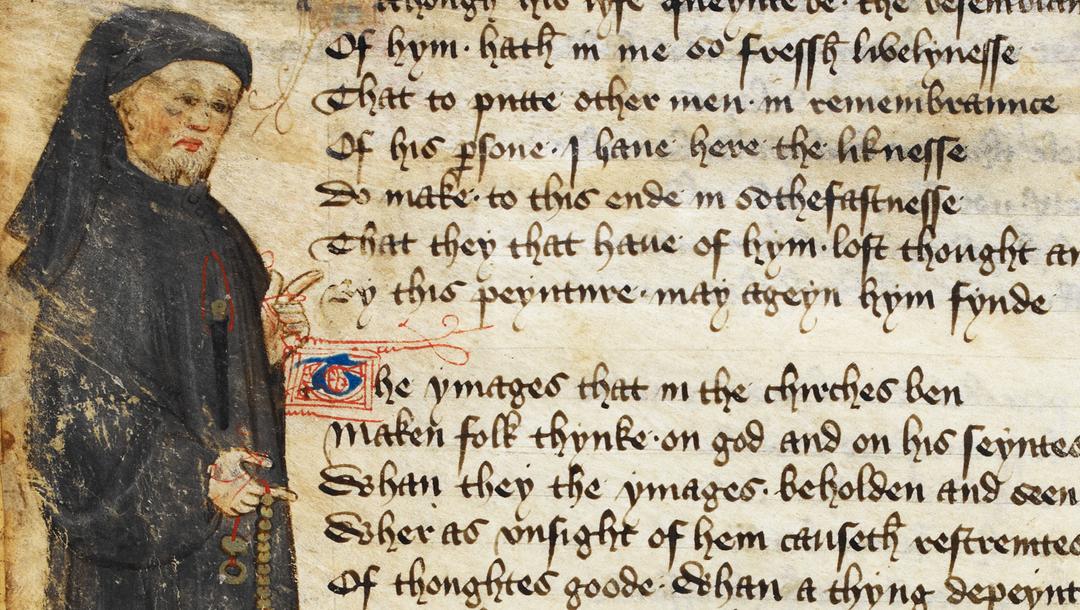 Although his lyfe queynte be· the resemblan
Of hym· hath in me so fressh lyvelynesse
That to putte other men· in remembraunce
Of his psone· I haue here the liknesse
Do make· to this ende in sothefastnesse
That they that haue of hym· lost thought an
By this peynture· may ageyn hym fynde
The ymages that in the chirches ben
Maken folk thynke· on god and on his seyntes
Whan they the ymages· beholden and seen
Wher as vnsight of hem causeth restreintes
Of thoughtes goode· Whan a thyng depeynt